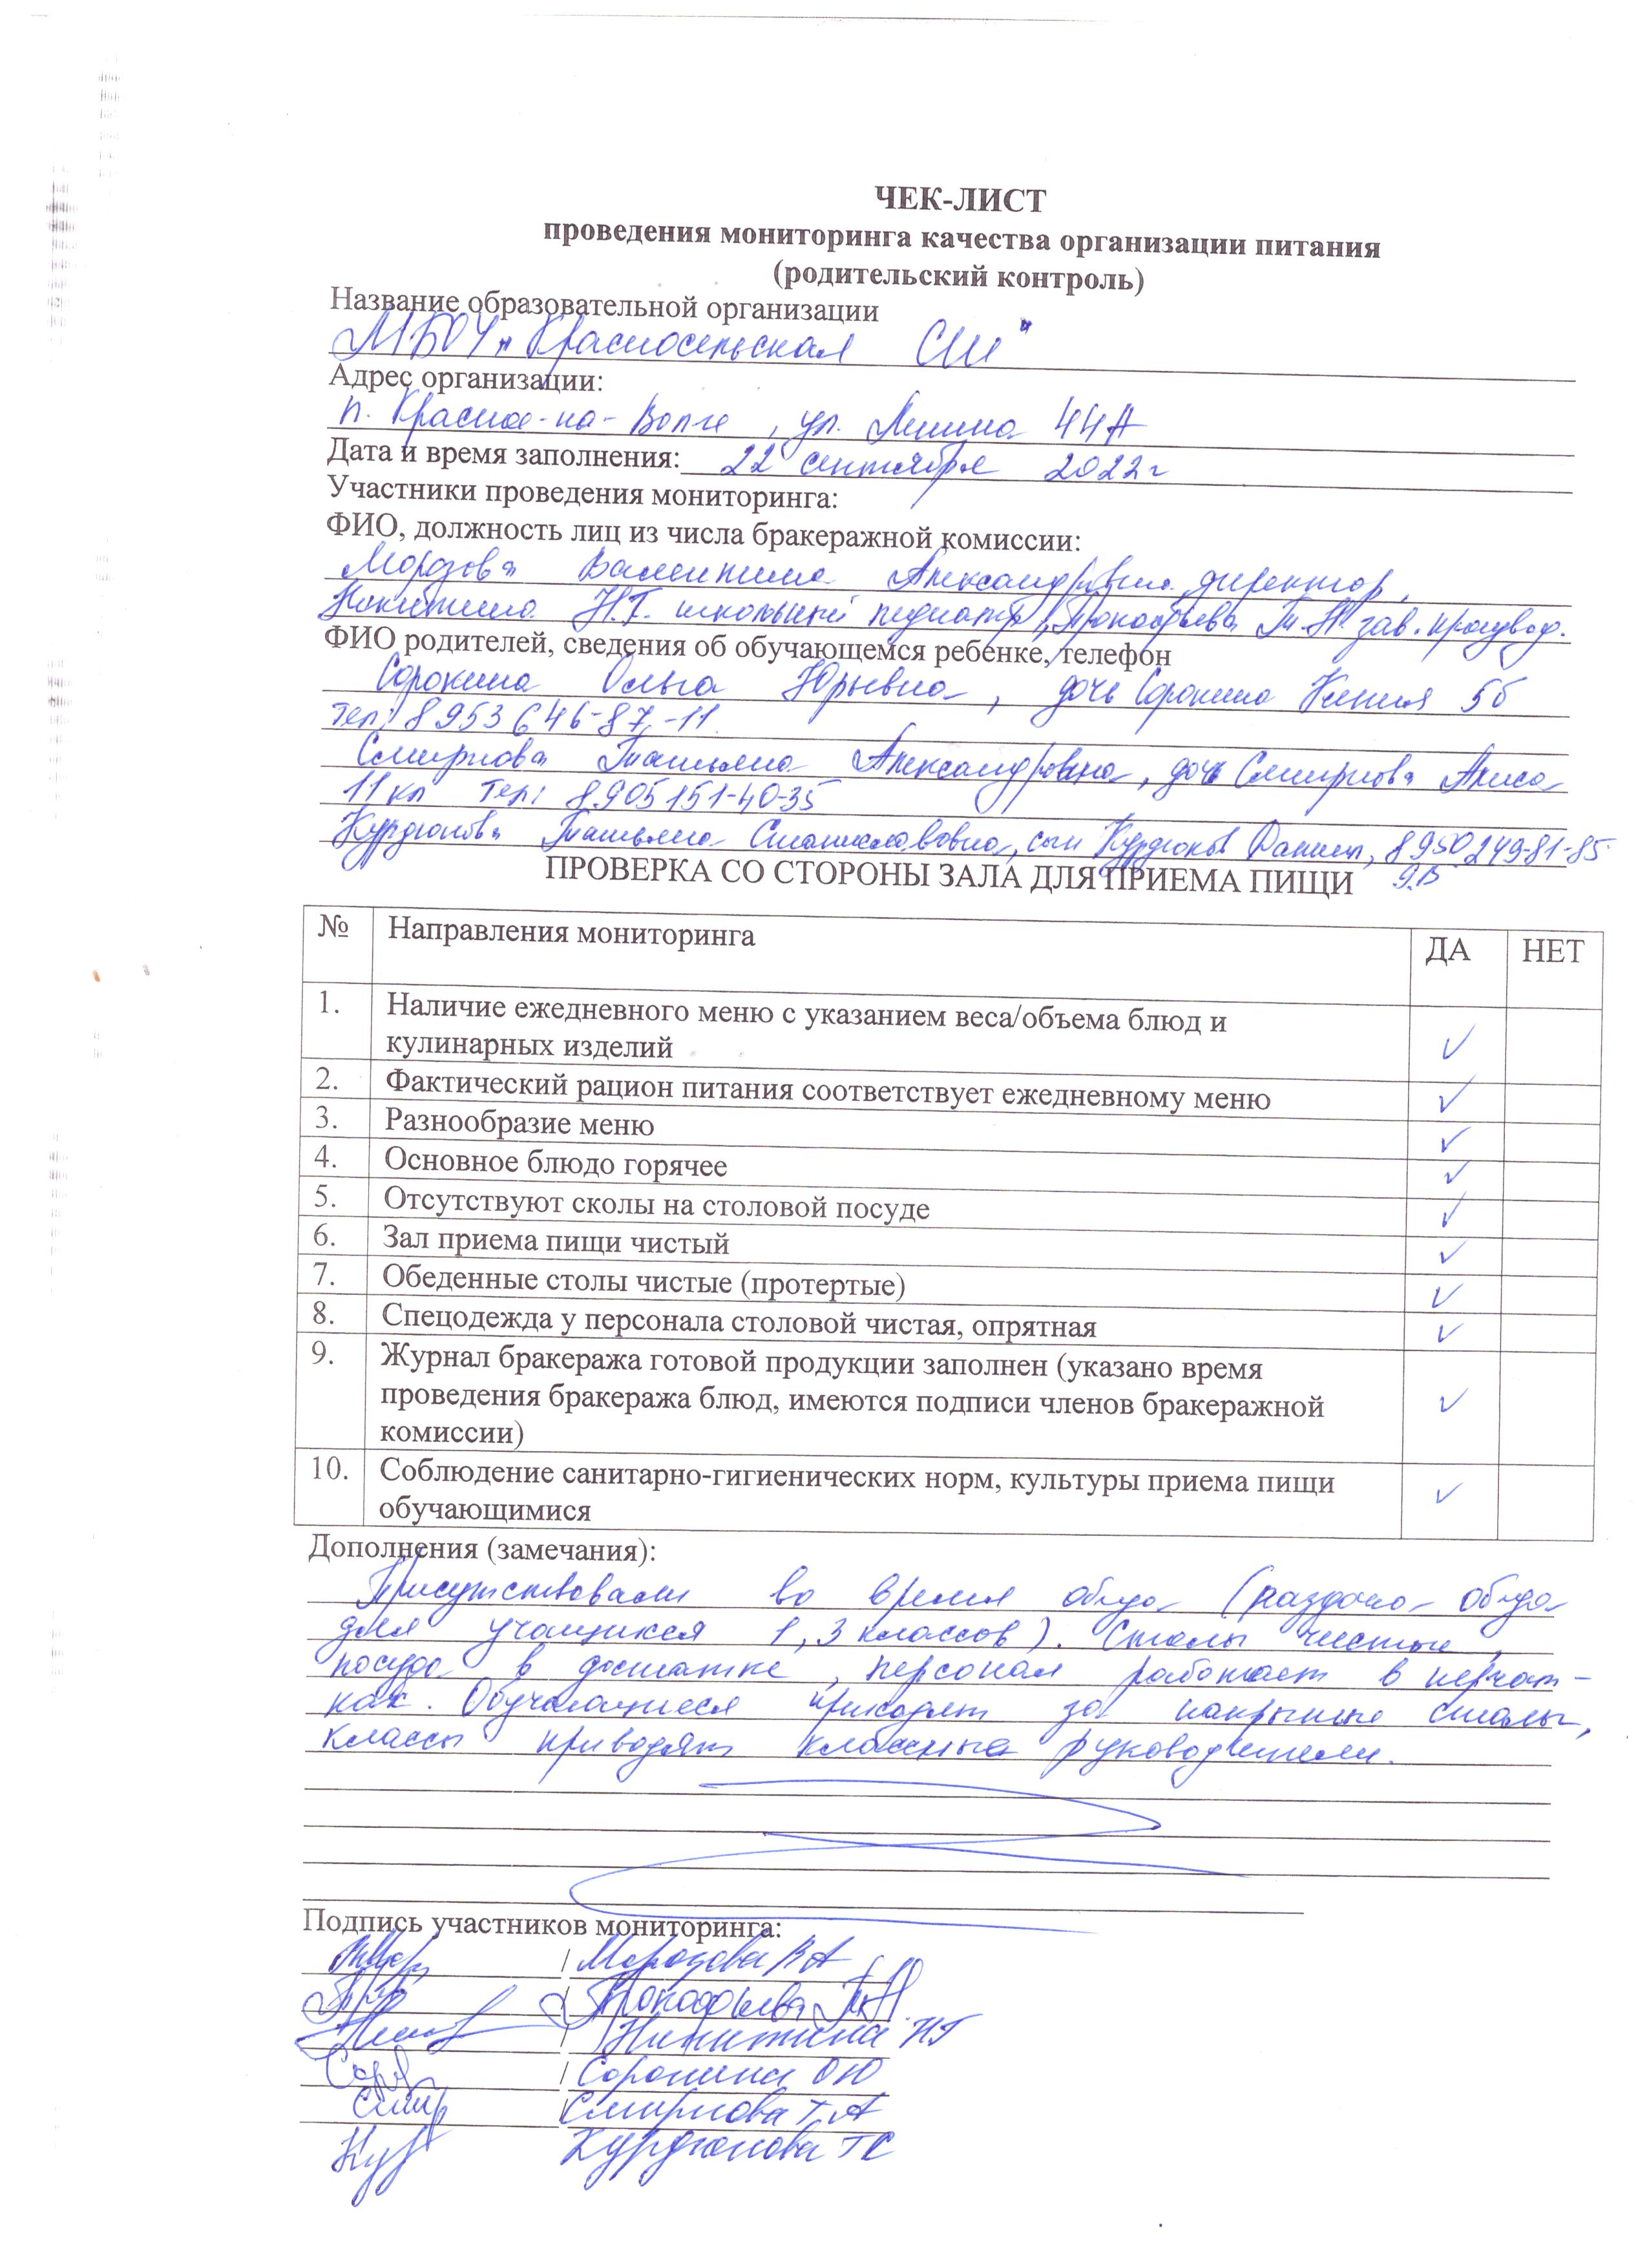 ЧЕК-ЛИСТ
проведения мониторинга качества организации питания
(родительский контроль)
Название образовательной организации
МБОУ "Красносельская СШ"
Адрес организации:
п. Красное-на-Волге, ул. Ленина 44А
Дата и время заполнения: 22 сентября 2022г
Участники проведения мониторинга:
ФИО, должность лиц из числа бракеражной комиссии:
Морозова Валентина Александровна директор,
Никитина Н.Г. школьный педиатр, Прокофьева Т.Н зав. производ.
ФИО родителей, сведения об обучающемся ребенке, телефон
Сорокина Ольга Юрьевна, дочь Сорокина Ксения 5б
тел: 8953 646-87-11
Смирнова Татьяна Александровна, дочь Смирнова Алиса
11 кл Тел: 8905 151-40-35
Курдюкова Татьяна Станиславовна, сын Курдюков Даниил, 8950 249-81-85
9В
ПРОВЕРКА СО СТОРОНЫ ЗАЛА ДЛЯ ПРИЕМА ПИЩИ
№ Направления мониторинга ДА НЕТ
1. Наличие ежедневного меню с указанием веса/объема блюд и
кулинарных изделий ✓
2. Фактический рацион питания соответствует ежедневному меню ✓
3. Разнообразие меню ✓
4. Основное блюдо горячее ✓
5. Отсутствуют сколы на столовой посуде ✓
6. Зал приема пищи чистый ✓
7. Обеденные столы чистые (протертые) ✓
8. Спецодежда у персонала столовой чистая, опрятная ✓
9. Журнал бракеража готовой продукции заполнен (указано время
проведения бракеража блюд, имеются подписи членов бракеражной ✓
комиссии)
10. Соблюдение санитарно-гигиенических норм, культуры приема пищи
обучающимися ✓
Дополнения (замечания):
Присутствовали во время обеда (раздача обеда
для учащихся 1, 3 классов). Столы чистые,
посуда в достатке, персонал работает в перчат-
ках. Обучающиеся приходят за накрытые столы,
классы приводят классные руководители.
Подпись участников мониторинга:
/ Морозова В А
/ Прокофьева Т.Н
/ Никитина НГ
Сор / Сорокина ОЮ
Смир / Смирнова Т.А
Кур Курдюкова ТС